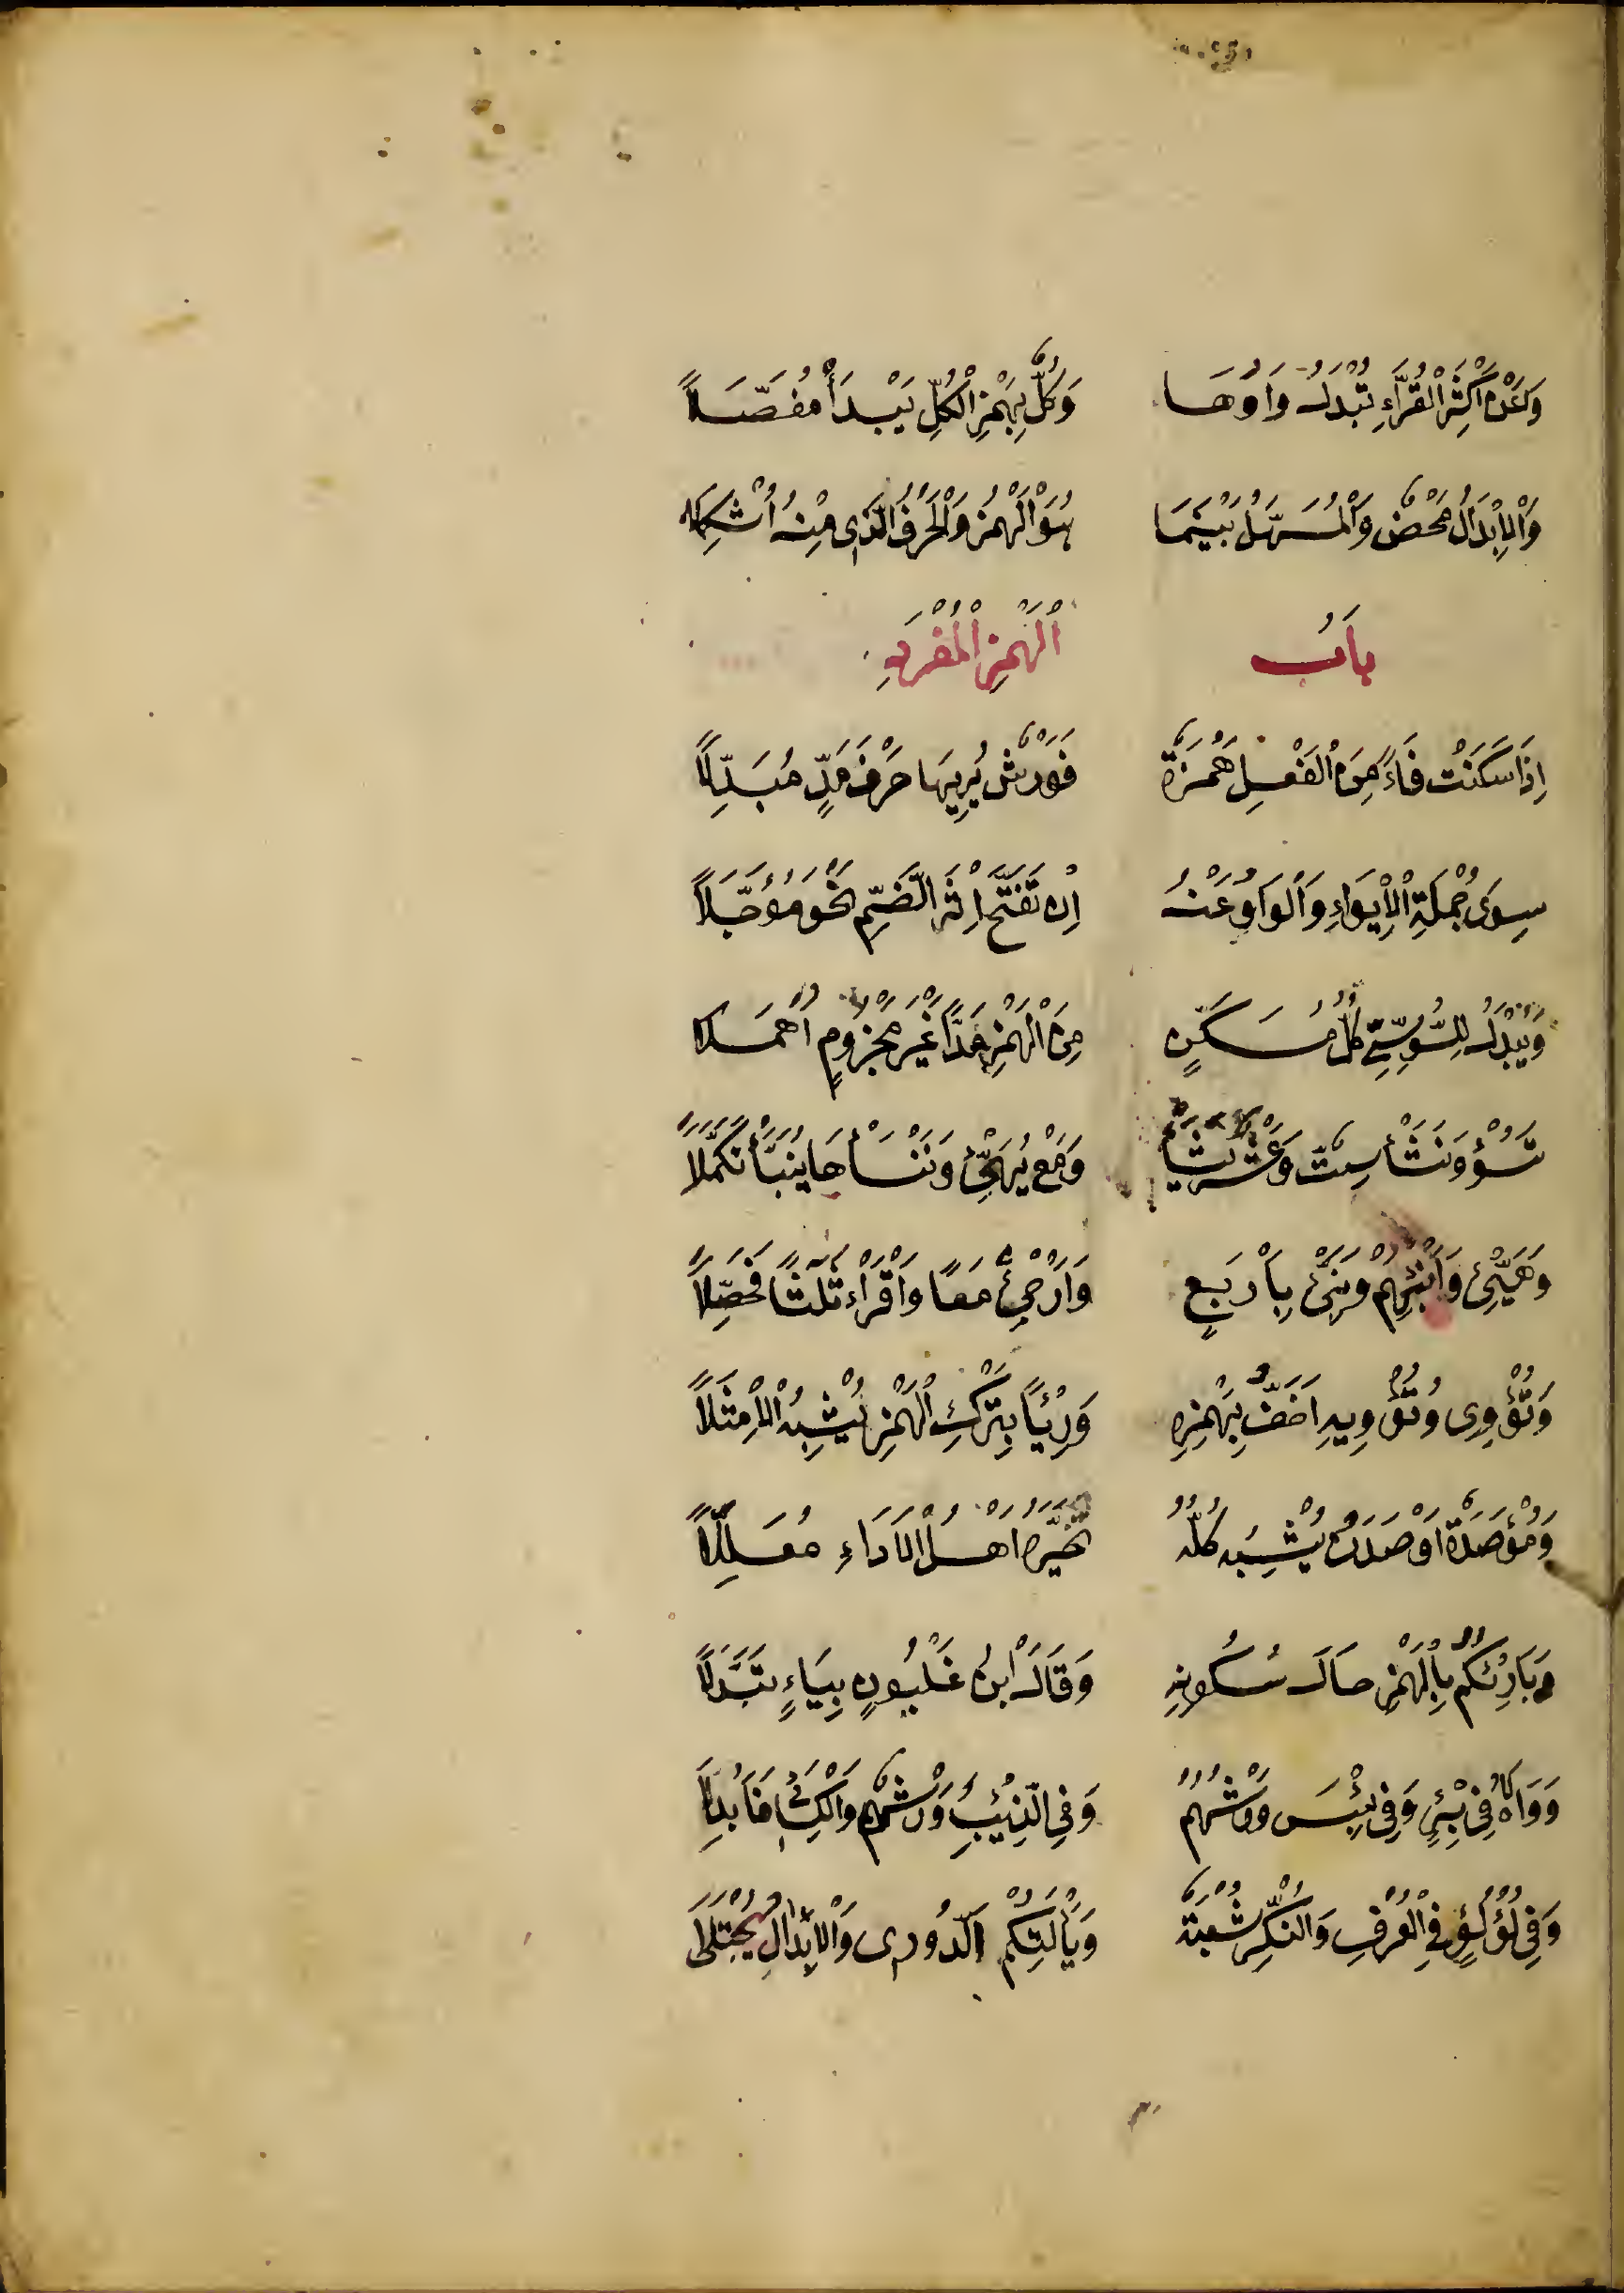 وَعَنْ أَكْثَرِ الْقُرَّاءِ تُبْدَلُ وَاوُهَا وَكُلٌّ بِهَمْزِ الْكُلِّ يَبْدَأُ مُفَصَّلًا
وَالْإِبْدَالُ مَحْضٌ وَالْمُسَهَّلُ بَيْنَمَا هُوَ الْهَمْزُ وَالْحَرْفُ الَّذِى مِنْهُ أُشْكِلَا
بَابُ الْهَمْزِ الْمُفْرَدِ
اِذَا سَكَنَتْ فَاءً مِنَ الْفِعْلِ هَمْزَةٌ فَوَرْشٌ يُرِيهَا حَرْفَ مَدٍّ مُبَدِّلًا
سِوَى جُمْلَةِ الْإِيوَاءِ وَالْوَاوُ عَنْهُ اِنْ تَفَتَّحَ اِثْرَ الضَّمِّ نَحْوَ مُؤَجَّلًا
وَيُبْدَلُ لِلسُّوسِيِّ كُلُّ مُسَكَّنٍ مِنَ الْهَمْزِ مَدًّا غَيْرَ مَجْزُومٍ اُهْمِلَا
تَسُؤْ وَنَشَأْ سِتٌّ وَعَشْرُ يَشَأْ وَمَعْ يُهَيِّئْ وَنَنْسَأْهَا يُنَبَّأْ تَكَمَّلَا
وَهَيِّئْ وَأَنْبِئْهُمْ وَنَبِّئْ بِأَرْبَعٍ وَأَرْجِئْ مَعًا وَاقْرَأْ ثَلٰثًا فَحَصِّلًا
وَتُؤْوِى وَتُؤْوِيهِ اَخَفُّ بِهَمْزِهِ وَرِئْيًا بِتَرْكِ الْهَمْزِ يُشْبِهُ الْاِمْتِلَا
وَمُؤْصَدَةٌ اَوْصَدْتُ يُشْبِهُ كُلُّهُ تَخَيَّرَهُ اَهْلُ الْاَدَاءِ مُعَلِّلًا
وَبَارِئِكُمْ بِالْهَمْزِ حَالَ سُكُونِهِ وَقَالَ ابْنُ غَلْبُونٍ بِيَاءٍ تَبَدَّلَا
وَوَالَاهُ فِى بِئْرٍ وَفِى بِئْسَ وَرْشُهُمْ وَفِى الذِّئْبِ وَرْشٌ وَالْكِسَائِى فَأَبْدَلَا
وَفِى لُؤْلُؤٍ فِى الْعُرْفِ وَالنُّكْرِ شُعْبَةٌ وَيَأْلِتْكُمُ الدُّورِى وَالْإِبْدَالُ يُجْتَلَى